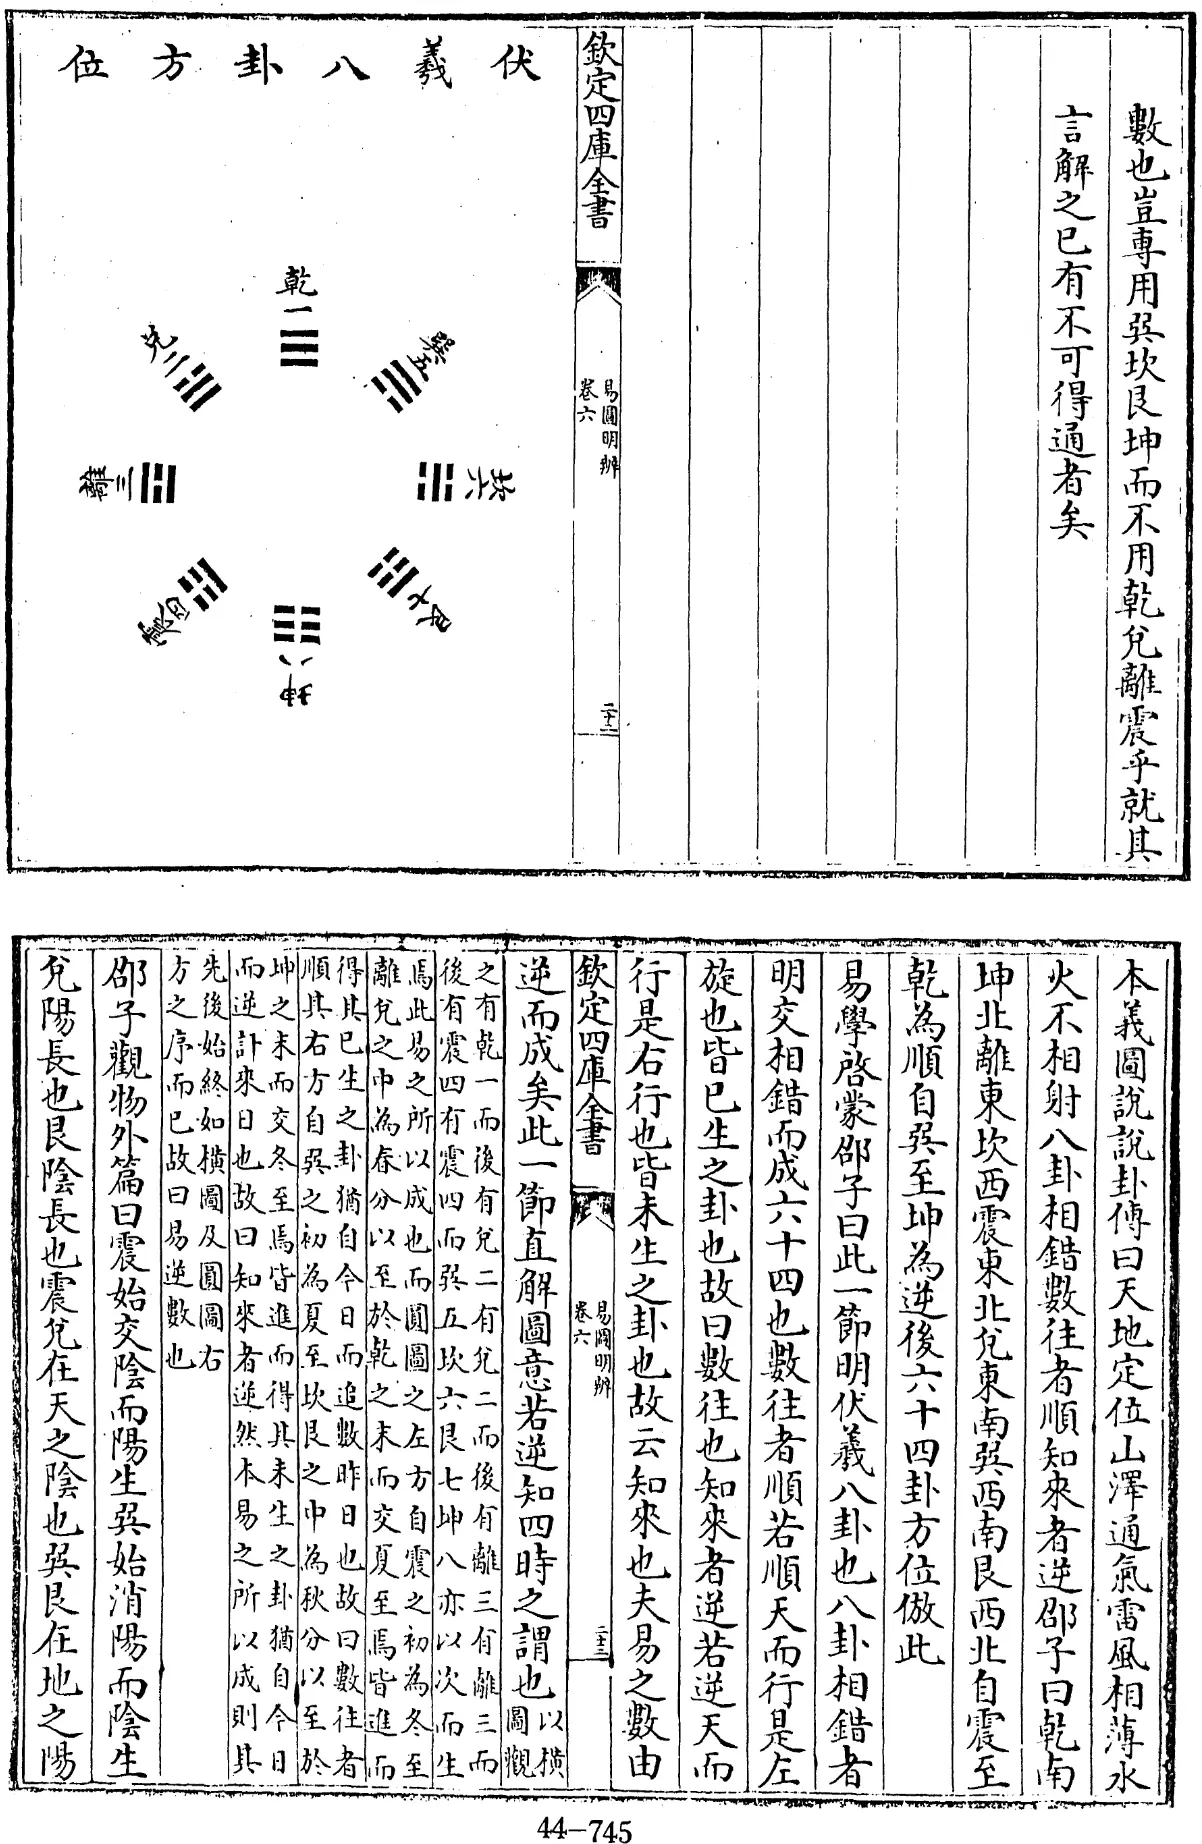 數也豈專用巽坎艮坤而不用乾兌離震乎就其
言解之已有不可得通者矣
欽定四庫全書
易圖明辨
卷六
二十二
伏羲八卦方位
乾一
兌二
離三
震四
巽五
坎六
艮七
坤八
本義圖說說卦傳曰天地定位山澤通氣雷風相薄水
火不相射八卦相錯數往者順知來者逆邵子曰乾南
坤北離東坎西震東北兌東南巽西南艮西北自震至
乾為順自巽至坤為逆後六十四卦方位倣此
易學啓蒙邵子曰此一節明伏羲八卦也八卦相錯者
明交相錯而成六十四也數往者順若順天而行是左
旋也皆已生之卦也故曰數往也知來者逆若逆天而
行是右行也皆未生之卦也故云知來也夫易之數由
欽定四庫全書
易圖明辨
卷六
二十三
逆而成矣此一節直解圖意若逆知四時之謂也以橫
圖觀
之有乾一而後有兌二有兌二而後有離三有離三而
後有震四有震四而巽五坎六艮七坤八亦以次而生
焉此易之所以成也而圓圖之左方自震之初為冬至
離兌之中為春分以至於乾之末而交夏至焉皆進而
得其已生之卦猶自今日而追數昨日也故曰數往者
順其右方自巽之初為夏至坎艮之中為秋分以至於
坤之末而交冬至焉皆進而得其未生之卦猶自今日
而逆計來日也故曰知來者逆然本易之所以成則其
先後始終如橫圖及圓圖右
方之序而已故曰易逆數也
邵子觀物外篇曰震始交陰而陽生巽始消陽而陰生
兌陽長也艮陰長也震兌在天之陰也巽艮在地之陽
44-745